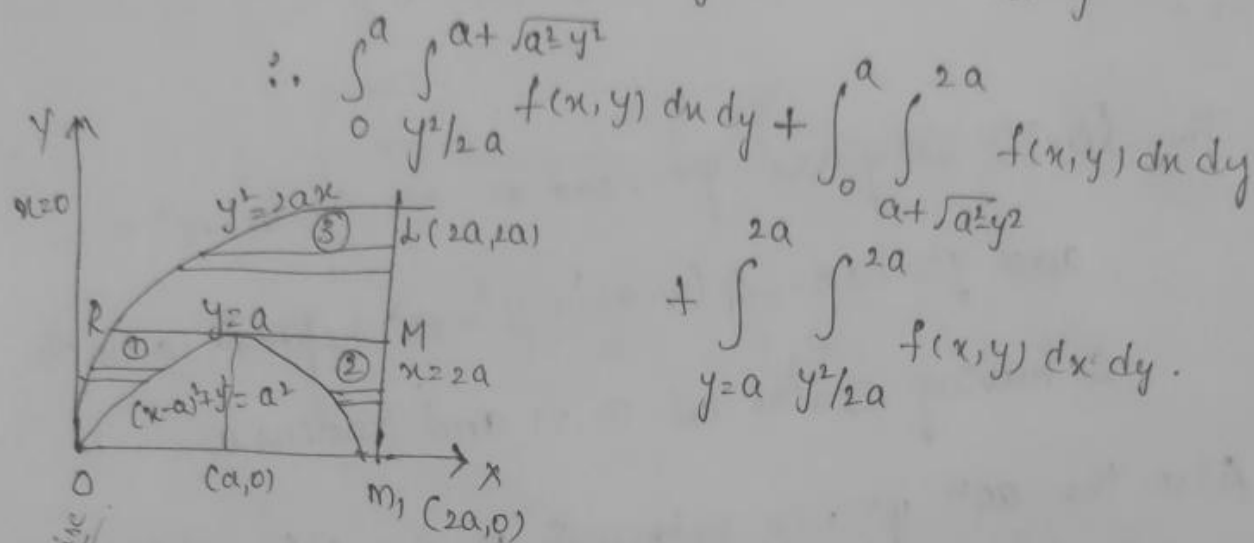 ∴ ∫₀^a ∫_{y²/2a}^{a+√(a²-y²)} f(x,y) dx dy + ∫₀^a ∫_{a+√(a²-y²)}^{2a} f(x,y) dx dy
+ ∫_{y=a}^{2a} ∫_{y²/2a}^{2a} f(x,y) dx dy.
Y
x=0
y²=2ax
③
L(2a,2a)
R
y=a
M
①
②
x=2a
(x-a)²+y²=a²
O
(a,0)
M₁ (2a,0)
X